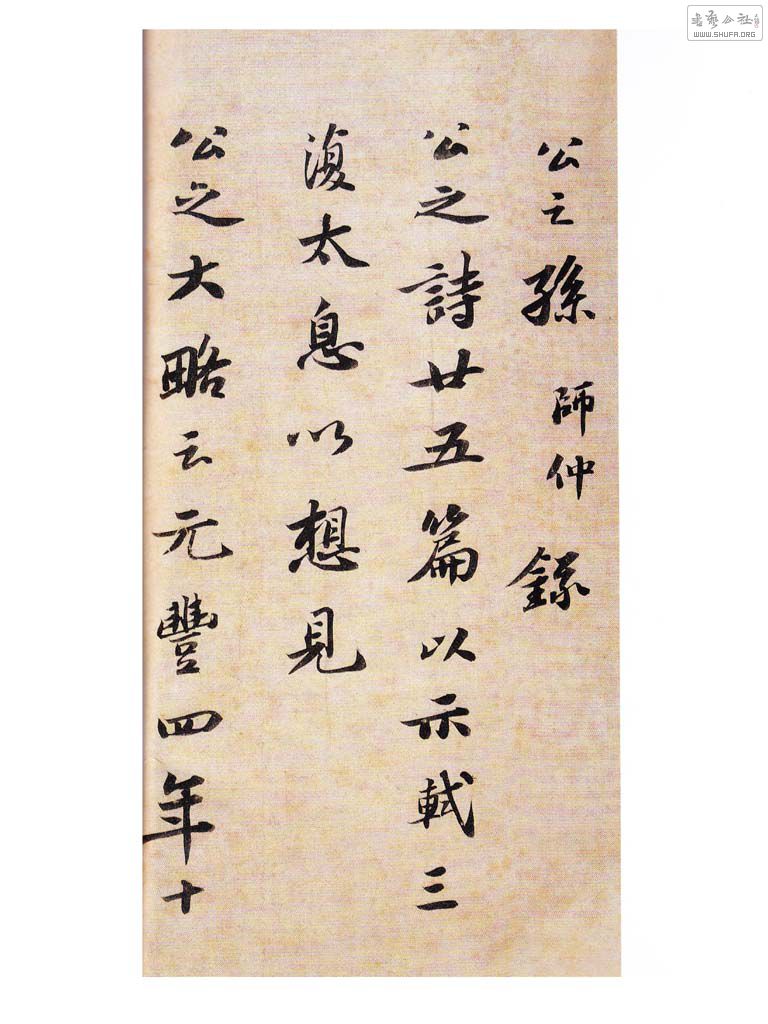 公之孫師仲錄
公之詩廿五篇以示軾三
復太息以想見
公之大略云元豐四年十
WWW.SHUFA.ORG